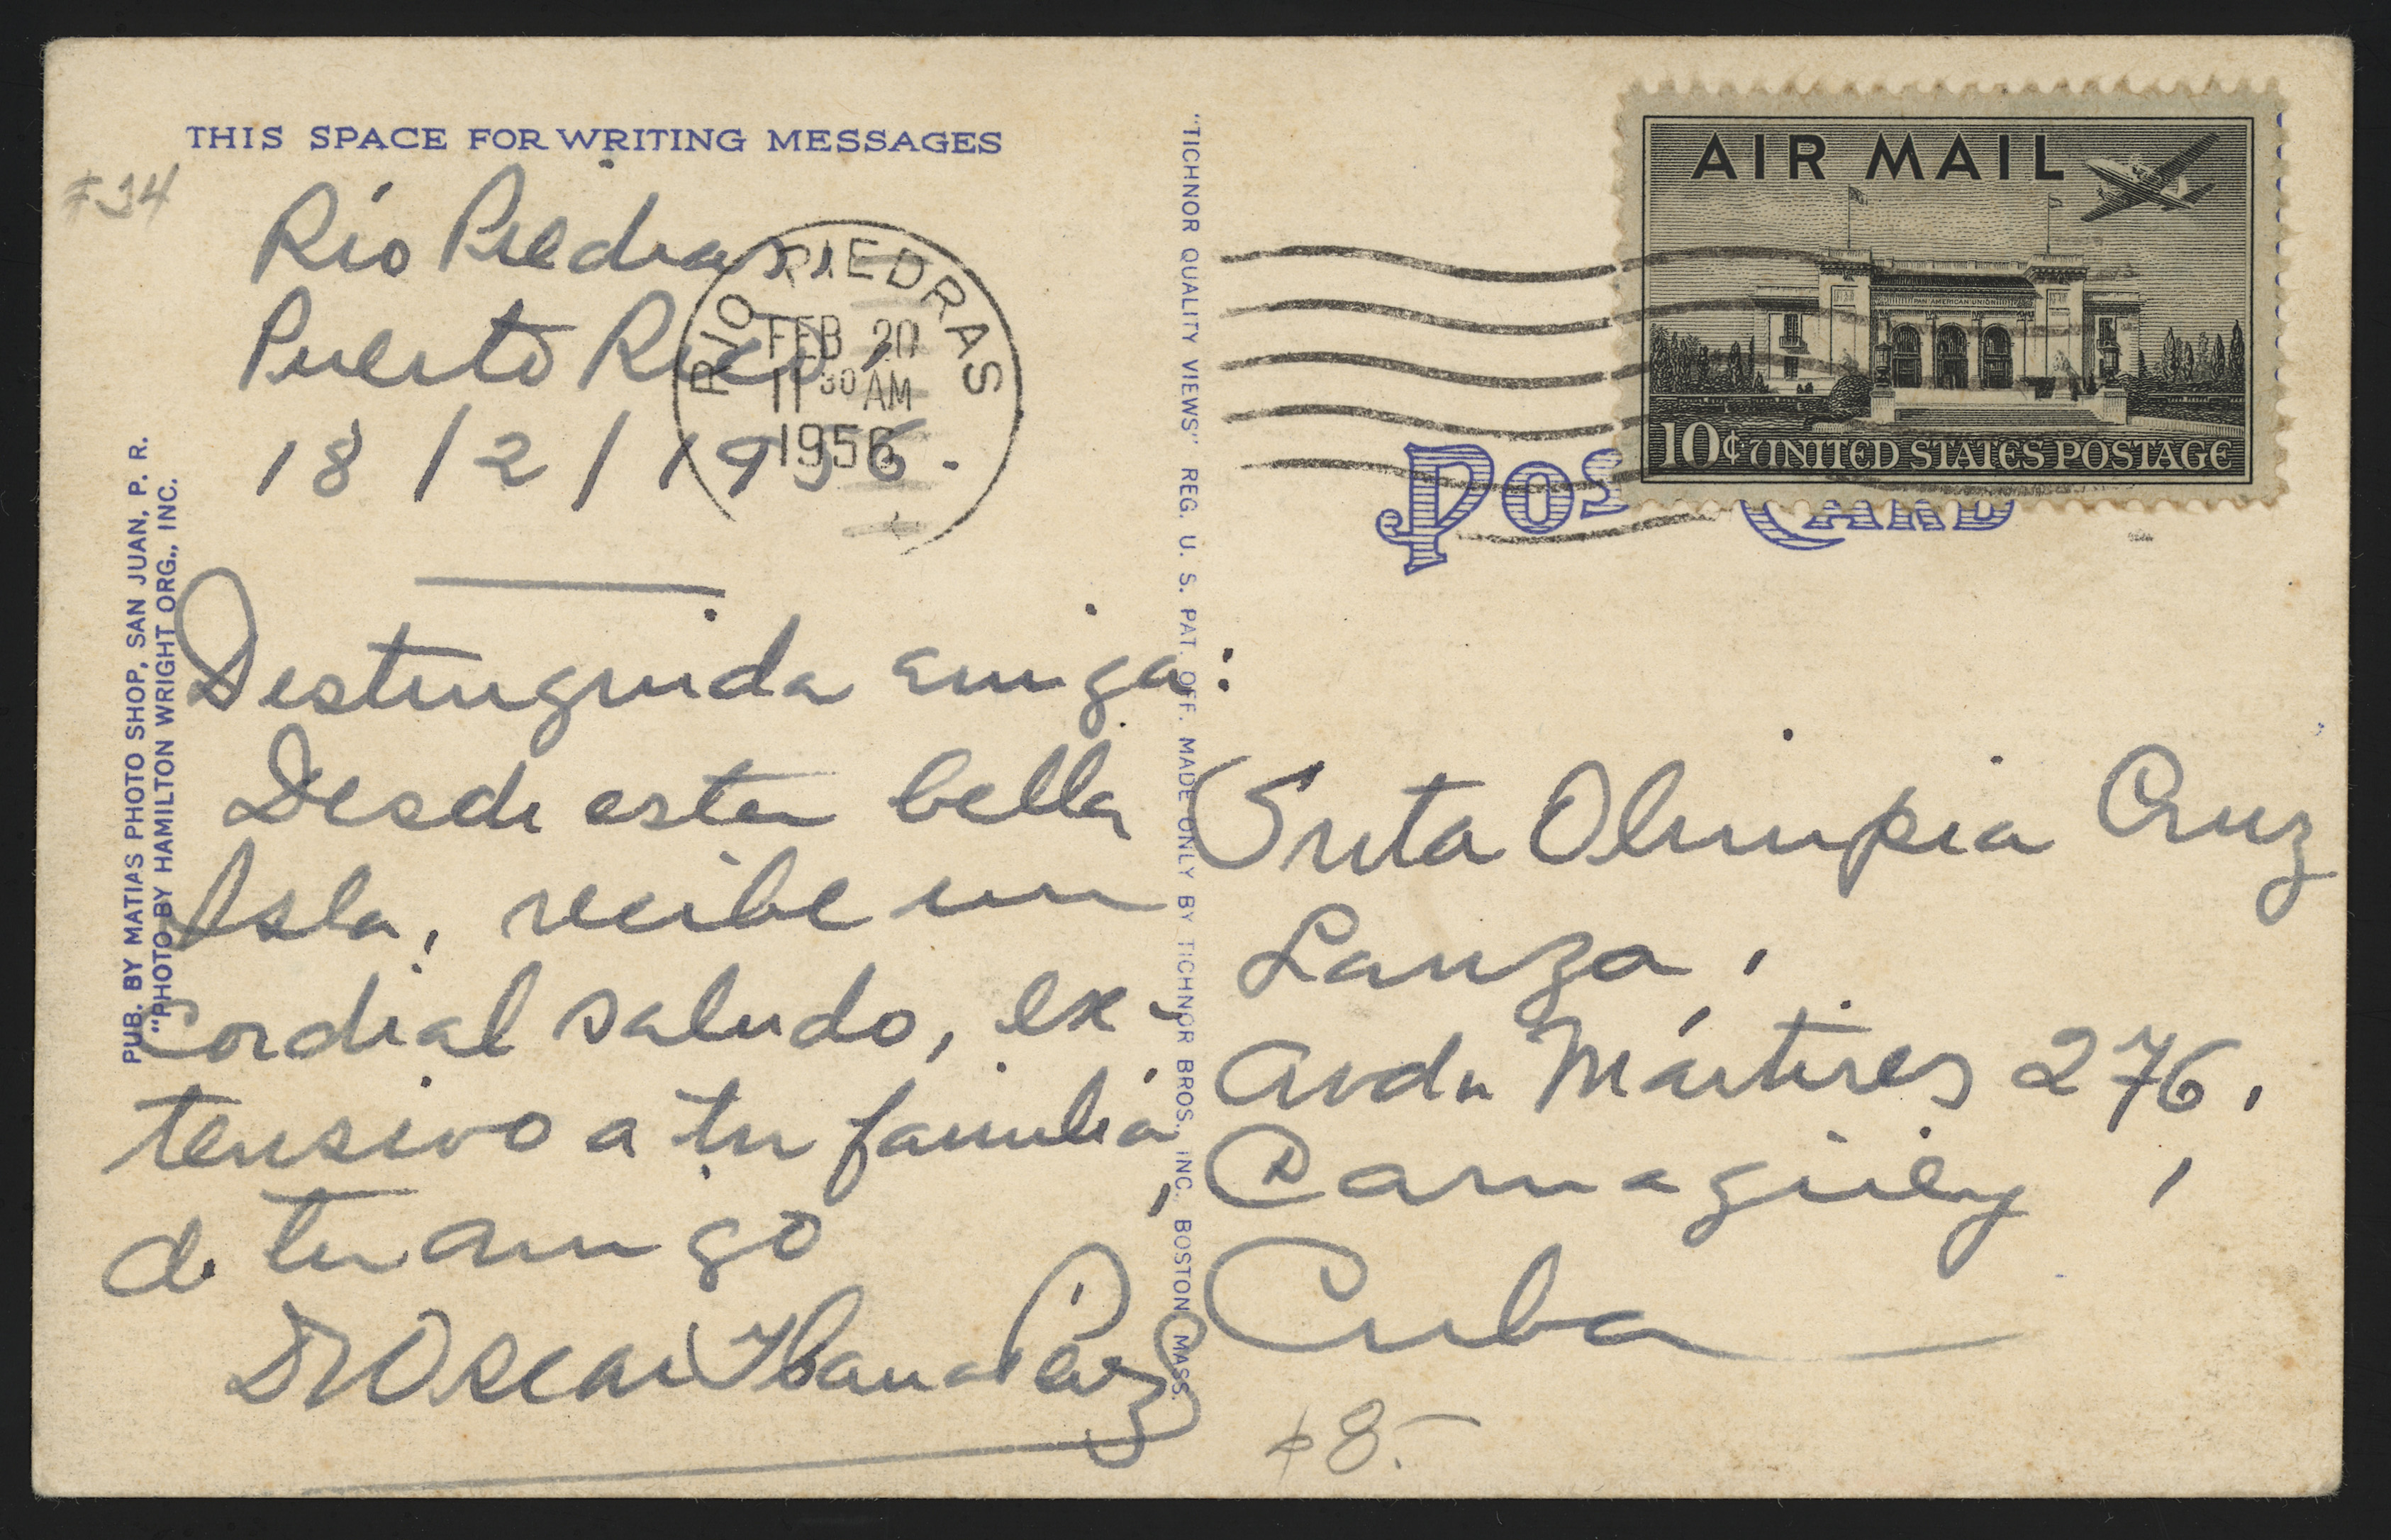 THIS SPACE FOR WRITING MESSAGES
#34
Río Piedras,
Puerto Rico,
18/2/1956.
RIO PIEDRAS
FEB 20
11 30 AM
1956
Distinguida amiga:
Desde esta bella
Isla, recibe un
cordial saludo, ex-
tensivo a tu familia,
de tu amigo
Dr Oscar Pérez
PUB. BY MATIAS PHOTO SHOP, SAN JUAN, P. R.
"PHOTO BY HAMILTON WRIGHT ORG., INC.
"TICHNOR QUALITY VIEWS" REG. U. S. PAT. OFF. MADE ONLY BY TICHNOR BROS., INC., BOSTON, MASS.
AIR MAIL
PAN AMERICAN UNION
10¢ UNITED STATES POSTAGE
POST CARD
Srita Olimpia Cruz
Lanza,
Avda Mártires 276,
Camagüey,
Cuba
$8.-